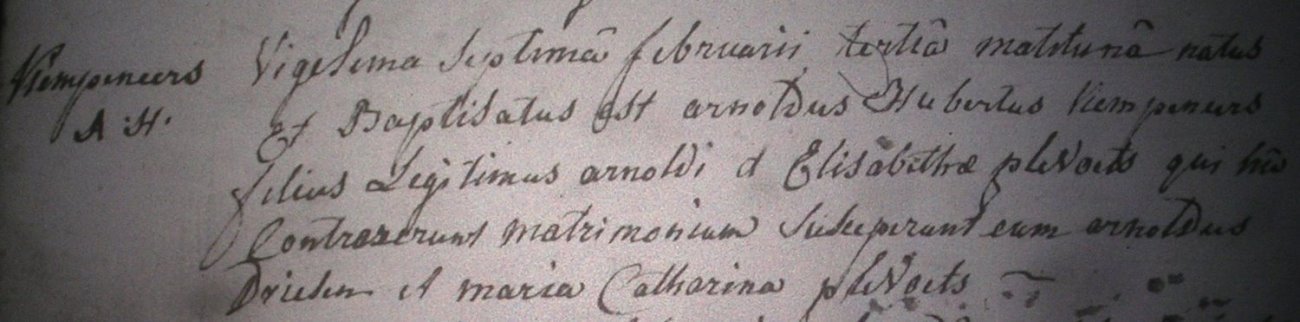 Kempeneers
A: H.
Vigesima septimâ februarii tertiâ matutinâ natus
Et Baptisatus est arnoldus Hubertus Kempeneers
filius Legitimus arnoldi et Elisabethæ pleVoets qui hîc
Contraxerunt matrimonium Susceperunt eum arnoldus
Driesen et maria Catharina pleVoets